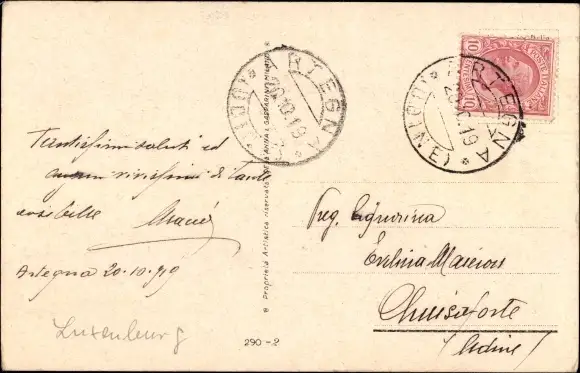 Tantissimi saluti ed
auguri vivissimi di tante
cose belle
Artegna 20.10.919
Luxenburg
ARTEGNA
(UDINE)
20.10.19
ARTEGNA
(UDINE)
20.10.19
Proprietà Artistica riservata
290-2
Preg. Signorina
Evelina
Chiusaforte
(Udine)
10
10